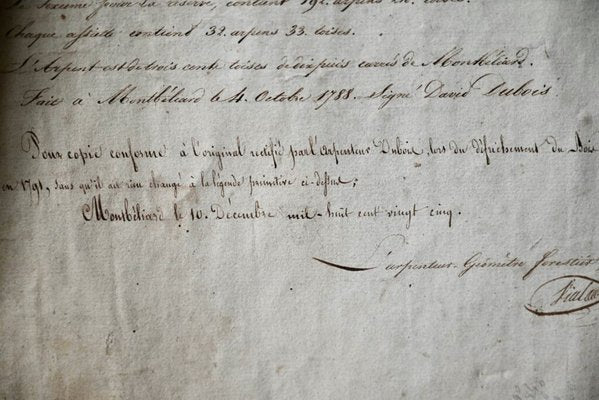 Le Sixième pour la réserve, contient 192. arpens 2n.
Chaque assiette contient 32. arpens 33. toises.
L'Arpent est de trois cents toises de dix pieds carrés de Montbéliard.
Fait à Montbéliard le 4. Octobre 1788. Signé David Dubois.
Pour copie conforme à l'original rectifié par l'arpenteur Dubois, lors du défrichement du Bois
en 1791, sans qu'il ait rien changé à la légende primitive ci-dessus;
Montbéliard le 10. Décembre mil-huit cent vingt cinq.
L'arpenteur-Géomètre forestier